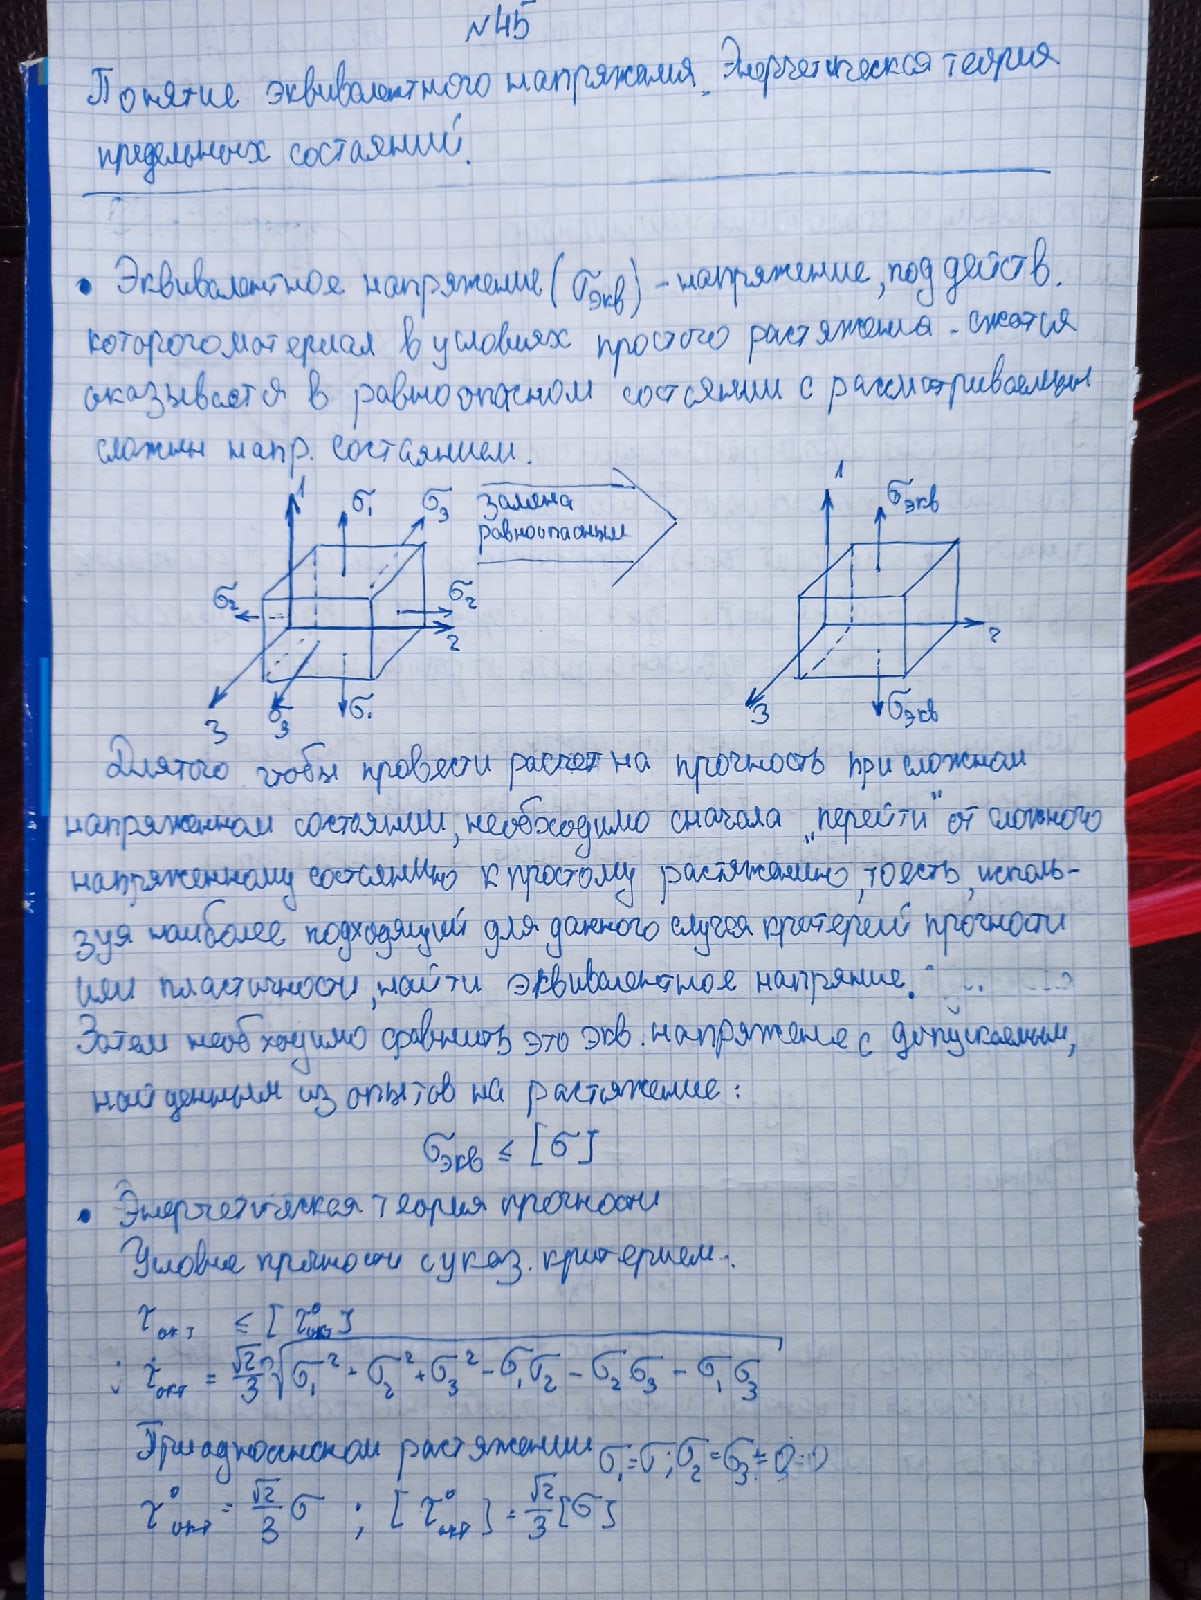 №45
Понятие эквивалентного напряжения. Энергетическая теория
предельных состояний.
• Эквивалентное напряжение (σэкв) - напряжение, под действ.
которого материал в условиях простого растяжения - сжатия
оказывается в равноопасном состоянии с рассматриваемым
сложн напр. состоянием.
1 σ₁ σ₃ замена 1 σэкв
равноопасным
σ₂ σ₂
2 2
3 σ₃ σ₁ 3 σэкв
Для того чтобы провести расчет на прочность при сложном
напряженном состоянии, необходимо сначала "перейти" от сложного
напряженному состоянию к простому растяжению, тоесть, исполь-
зуя наиболее подходящий для данного случая критерий прочности
или пластичности, найти эквивалентное напряние.
Затем необходимо сравнить это экв. напряжене с допускаемым,
найденным из опытов на растяжение:
σэкв ≤ [σ]
• Энергетическая теория прочности
Условие прочности с указ. критерием:
τокт ≤ [τ°окт]
τокт = √2/3 √σ₁² + σ₂² + σ₃² - σ₁σ₂ - σ₂σ₃ - σ₁σ₃
При одноосном растяжении σ₁ = σ; σ₂ = σ₃ = 0
τ°окт = √2/3 σ ; [τ°окт] = √2/3 [σ]